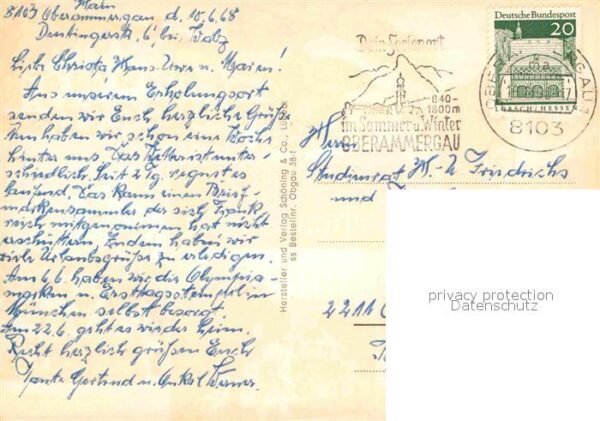 8103 Oberammergau d. 10.6.68
Dentingerstr. 6 bei
Liebe Christa, Hans-Uwe u. Maren!
Aus unserem Erholungsort
senden wir Euch herzliche Grüße
Nun haben wir schon eine Woche
hinter uns. Das Wetter ist unter-
schiedlich. Seit 2 Tg. regnet es
laufend. Das kann einen Brief-
markensammler der sich
mitgenommen hat nicht
erschüttern. Zudem haben wir
viele Urlaubsgrüße zu erledigen.
Am 6.6. haben wir die Olympia-
marken u. Ersttagsstempel in
München selbst besorgt.
Am 22.6. geht es wieder heim.
Recht herzlich grüßen Euch
Tante Gertrud u. Onkel Werner.
Hersteller und Verlag Schöning & Co., Lübeck
ss Bestellnr. Obgau 38
Dein Ferienort
840-
1800m
im Sommer u. Winter
OBERAMMERGAU
Deutsche Bundespost
20
LORSCH/HESSEN
OBERAMMERGAU 1
8103
Studienrat H.-U. Friedrichs
und
2211
privacy protection
Datenschutz